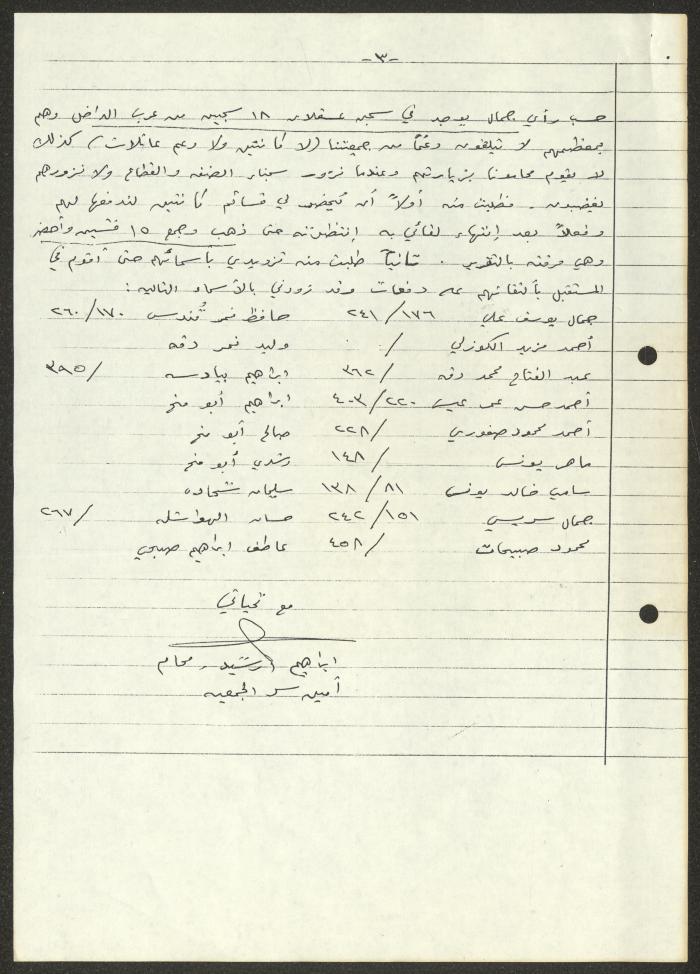 -٣-
حسب رأي جمال يوجد في سجن عسقلان ١٨ سجين من عرب الداخل وهم
بمعظمهم لا يتلقون دعماً من جمعيتنا (لا كانتين ولا دعم عائلات) كذلك
لا يقوم محامونا بزيارتهم وعندما نزور سجناء الضفه والقطاع ولا نزورهم
يغضبون . فطلبت منه أولاً أن يُحضر لي قسائم كانتين لندفعها لهم
وفعلاً بعد إنتهاء لقائي به إنتظرته حتى ذهب وجمع ١٥ قسيمه وأحضر
وهي مرفقه بالتقرير . ثانياً طلبت منه تزويدي بأسمائهم حتى أقوم في
المستقبل بألتقائهم على دفعات وقد زودني بالأسماء التاليه :
جمال يوسف علي ٢٤١/١٧٦ حافظ نمر قُندس ٢٦٠/١٧٠
أحمد مزيد الكوزلي / وليد نمر دقه
عبد الفتاح محمد دقه ٣٦٢/ ابراهيم بيادسه ٣٩٥/
أحمد حسن عمر عيسى ٤٠٣/٢٢٠ ابراهيم أبو مخ
أحمد محمود صفوري ٢٢٨/ صالح أبو مخ
ماهر يونس ١٤٨/ رشدي أبو مخ
سامي خالد يونس ١٣٨/٨١ سليمان شحاده
جمال سريسي ٢٤٢/١٥١ حسان الهواشله ٢٦٧/
محمود صبيحات ٤٥٨/ عاطف ابراهيم صبحي
مع تحياتي
ابراهيم ارشيد - محام
أمين سر الجمعيه